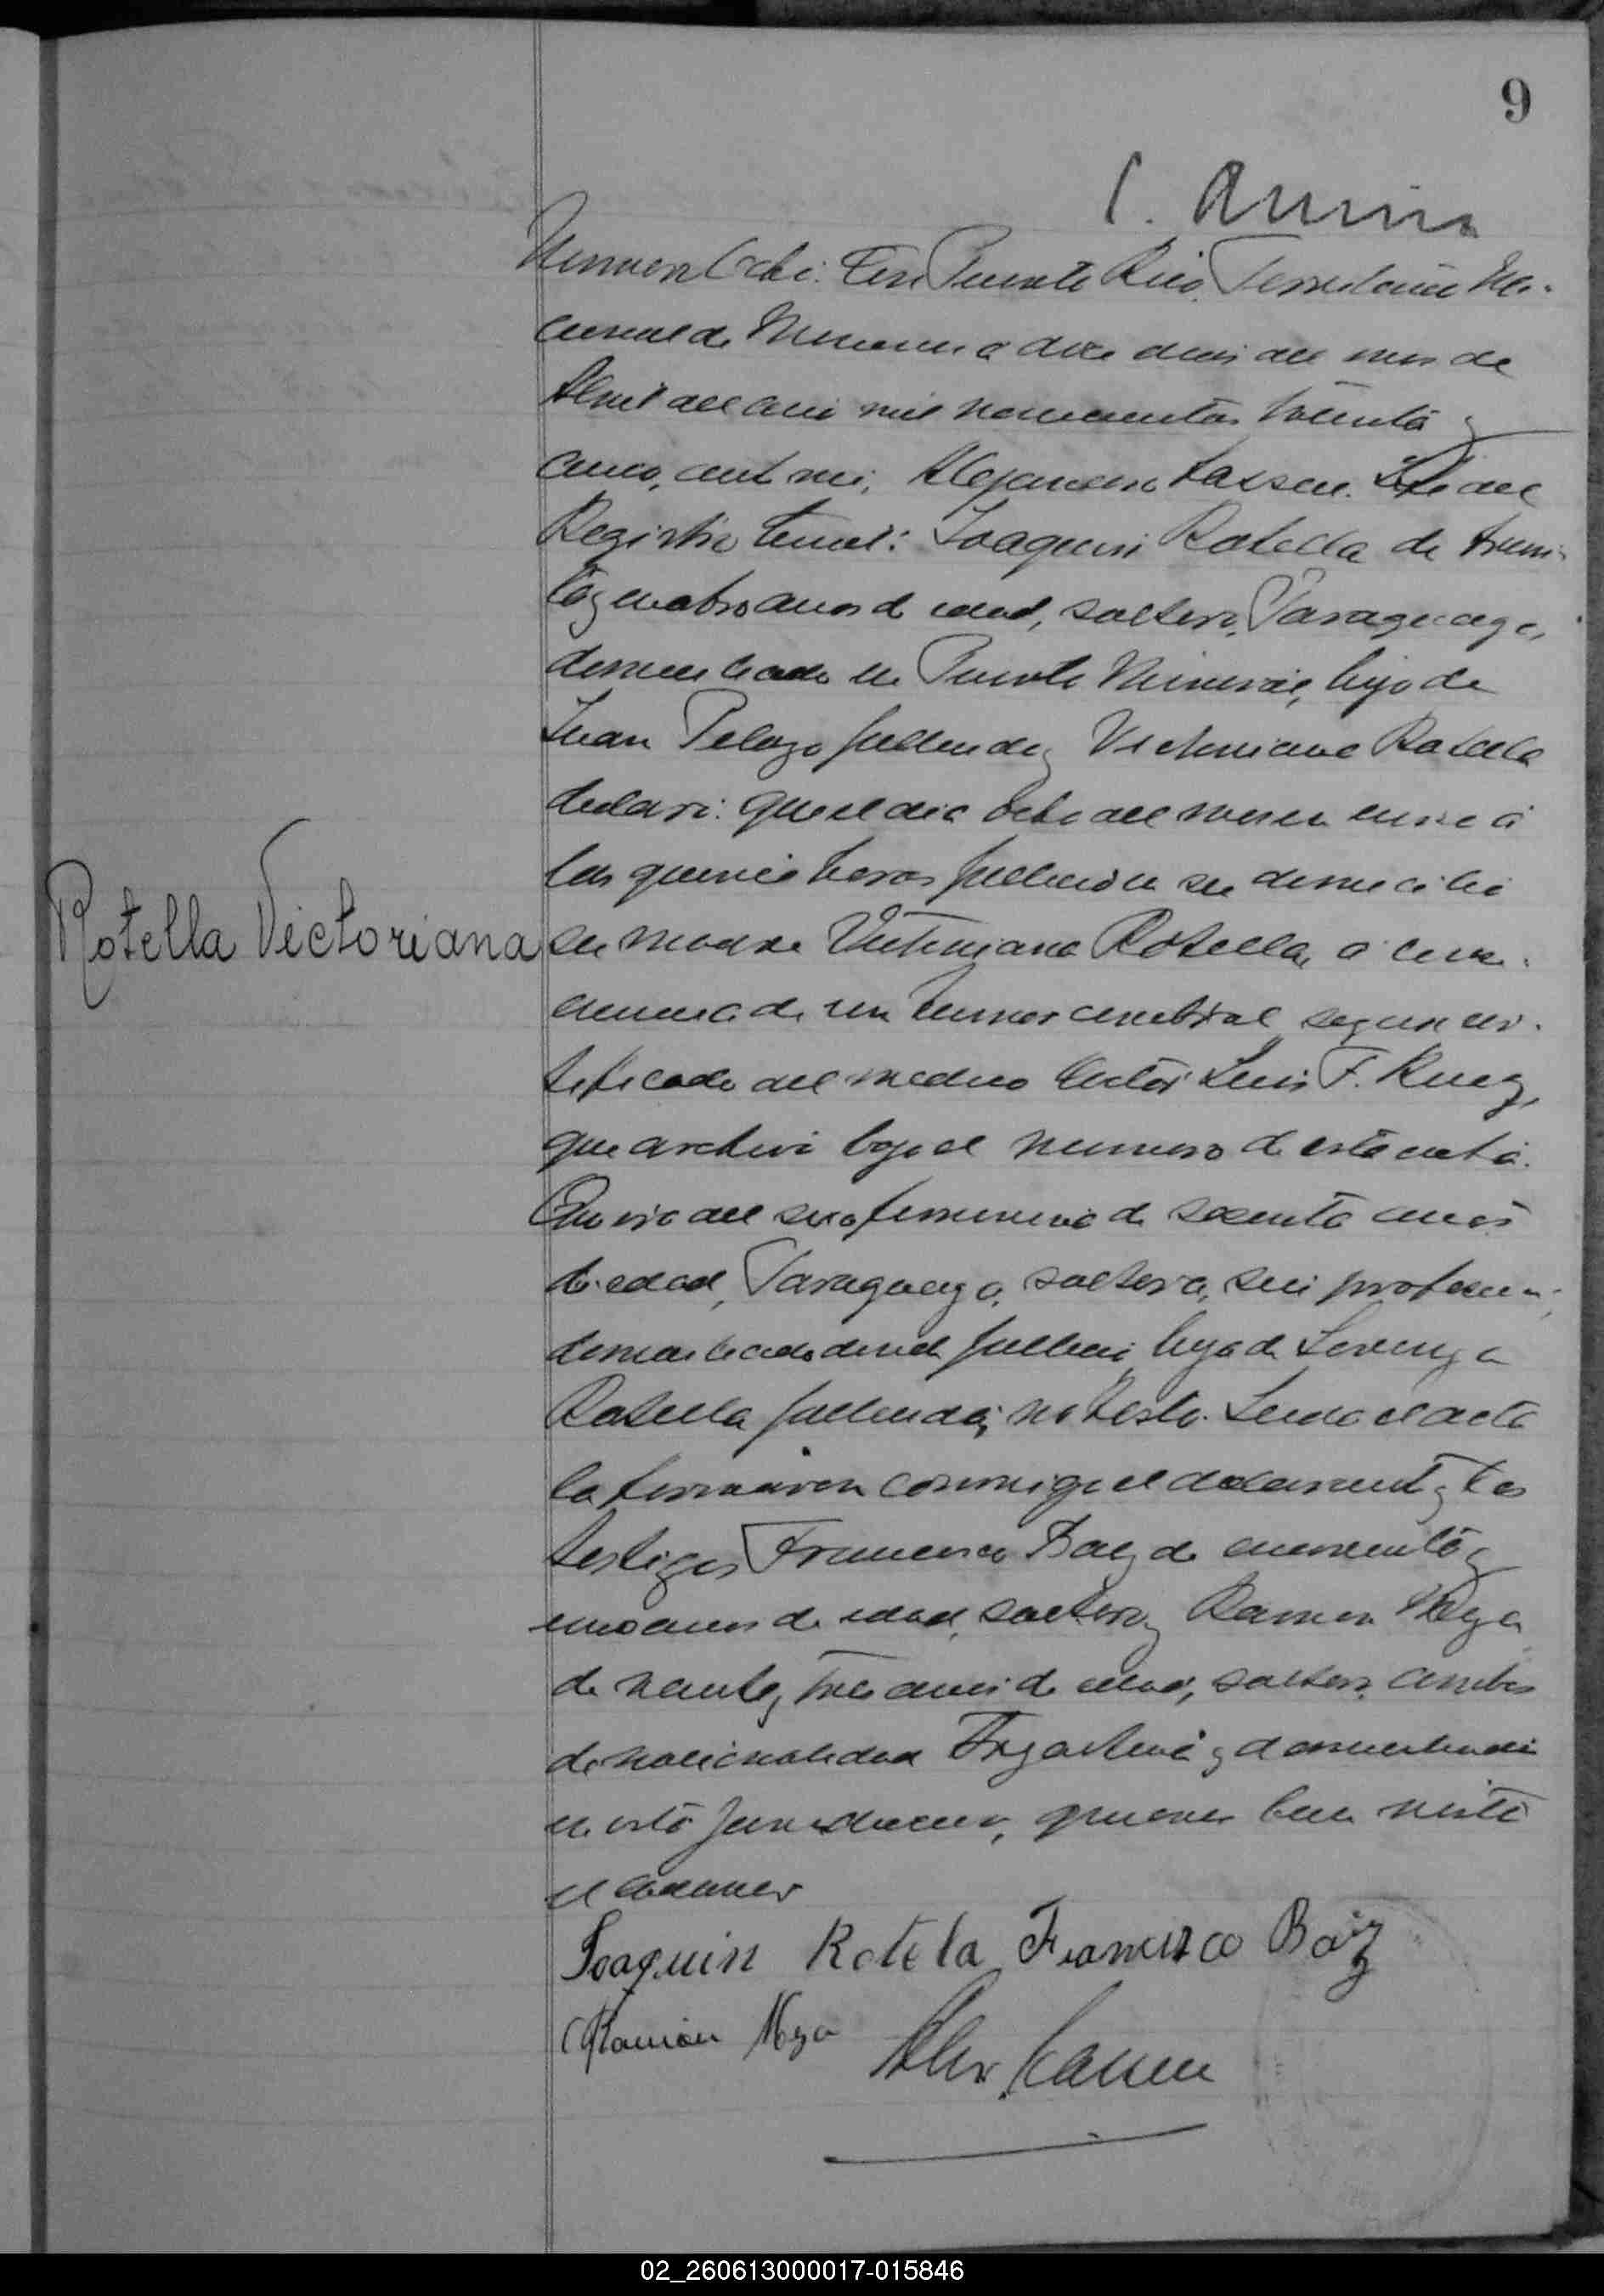 9
Numero Ocho: En Puerto Rico, Territorio Na-
cional de Misiones a doce dias del mes de
Abril del año mil novecientos treinta y
cinco, ante mi, Alejandro Lassen. Jefe del
Registro Civil: Joaquin Rotella de trein-
ta y cuatro años de edad, soltero, Paraguayo,
domiciliado en Puerto Mineral, hijo de
Juan Pelozo fallecido y Victoriana Rotella
declaró: Que el dia ocho del mes en curso á
las quince horas falleció en su domicilio
Rotella Victoriana
su madre Victoriana Rotella, a conse-
cuencia de un tumor cerebral segun cer-
tificado del medico Doctor Luis F. Ruez,
que archivo bajo el numero de esta acta.
Que era del sexo femenino de sesenta años
de edad, Paraguaya, soltera, sin profesion,
domiciliada donde falleció, hija de Lorenza
Rotella fallecida; no testó. Leida el acta
la firmaron conmigo el declarante y los
testigos Francisco Baez de cuarenta y
un años de edad, soltero y Ramon
de veinte y tres años de edad, soltero, ambos
de nacionalidad Argentina y domiciliados
en esta jurisdiccion, quienes han visto
el cadaver
Joaquin Rotela Francisco Baiz
Ramón Alex Lassen
02_260613000017-015846